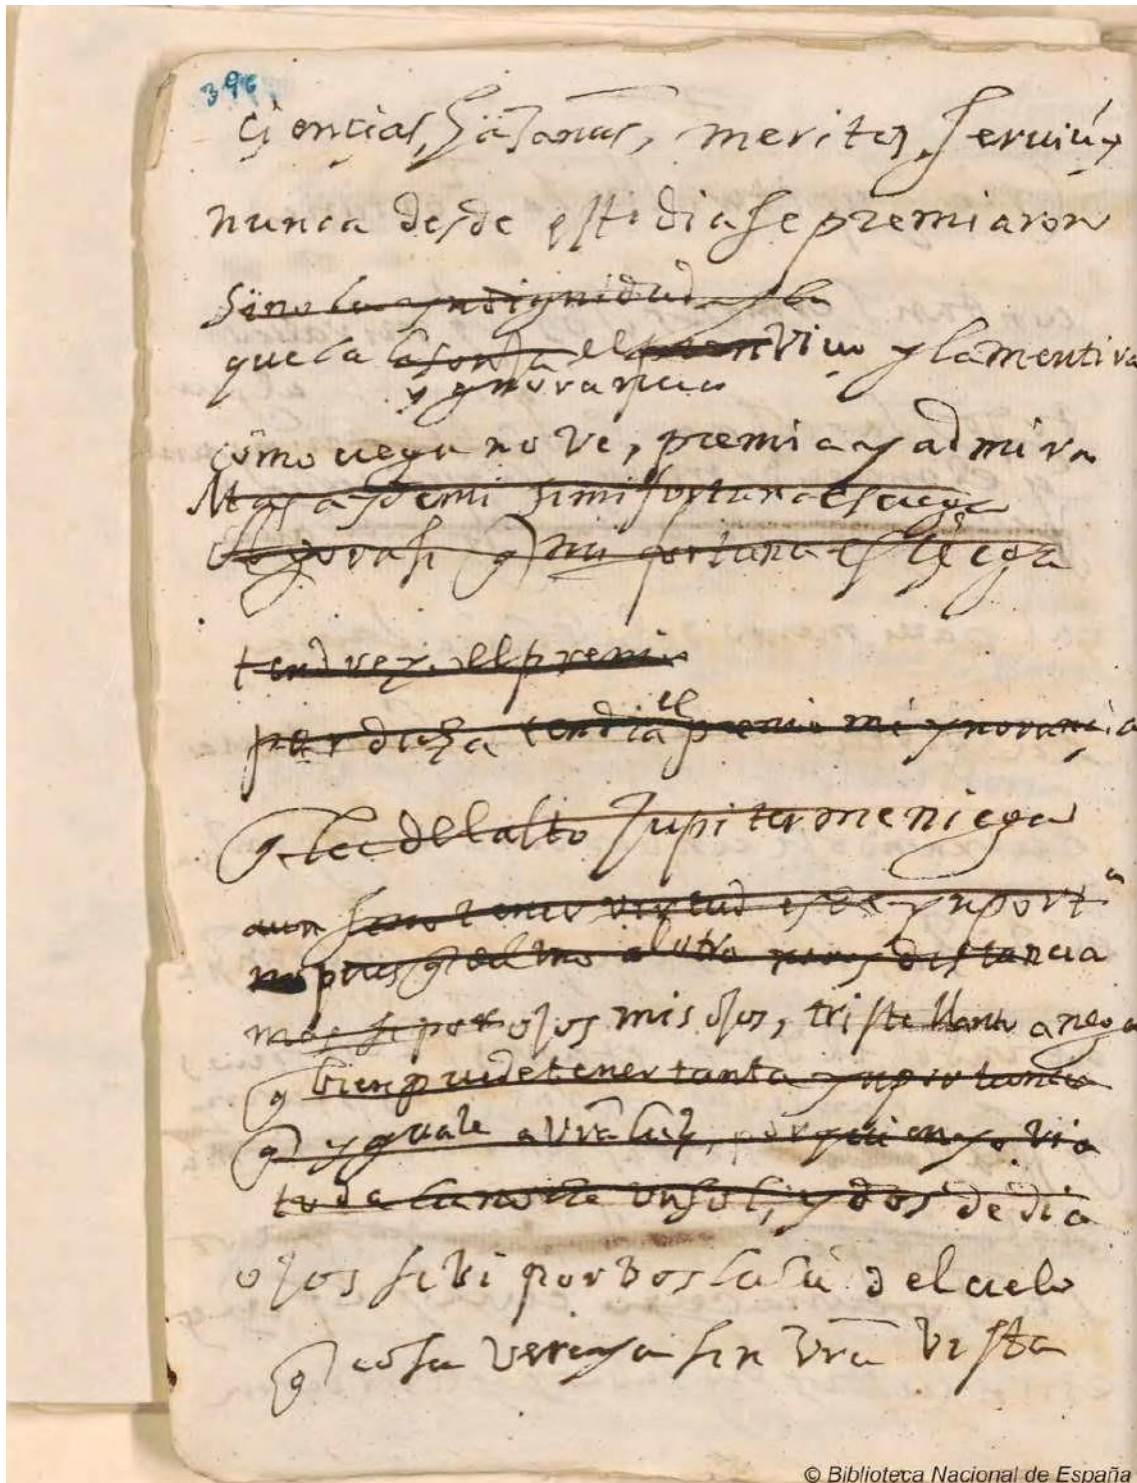 396
ciencias, hazañas, meritos, seruiçios
nunca desde este dia se premiaron
sino la yndignidad y la
que la lisonja el vicio y la mentira
y ygnorançia
como ciega no ve, premia y admira
Mas ay de mi si mi fortuna es ciega
q mi fortuna es çiega
tendrez el premio
por dicha tendria el premio mi ynorançia
q luz del alto Jupiter me niega
aun virtud es de ynport a
no pues q del vno al otro distancia
mas si por ojos mis ojos, triste llanto anega
q bien puede tener tanta ynportancia
q yguale a vra luz, por quien yo via
toda la noche vn sol, y dos de dia
ojos si vi por vos la luz del cielo
q cosa vere ya sin vra vista
© Biblioteca Nacional de España